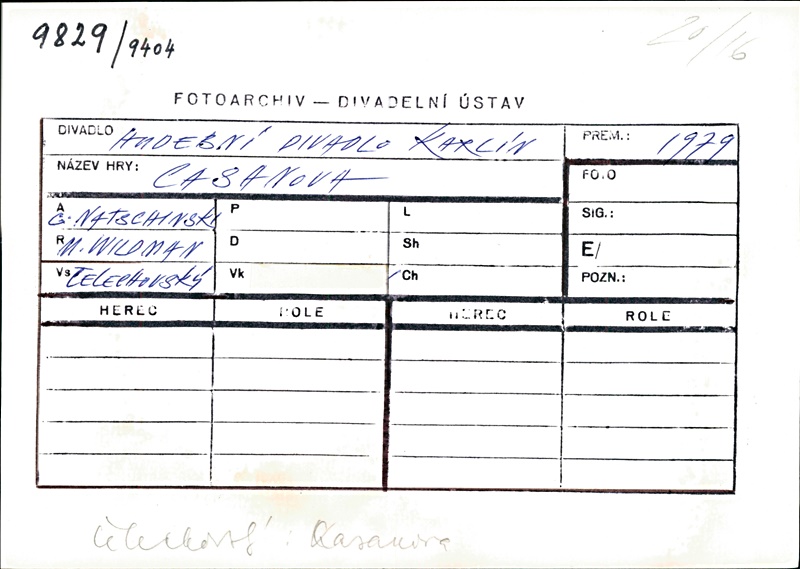 9829/9404
20/16
FOTOARCHIV — DIVADELNÍ ÚSTAV
DIVADLO HUDEBNÍ DIVADLO KARLÍN PREM.: 1979
NÁZEV HRY: CASANOVA FO.O
A G. NATSCHINSKI P L SIG.:
R M. WILDMAN D Sh E/
Vs TELECHOVSKÝ Vk Ch POZN.:
HEREC ROLE HEREC ROLE
Casanova